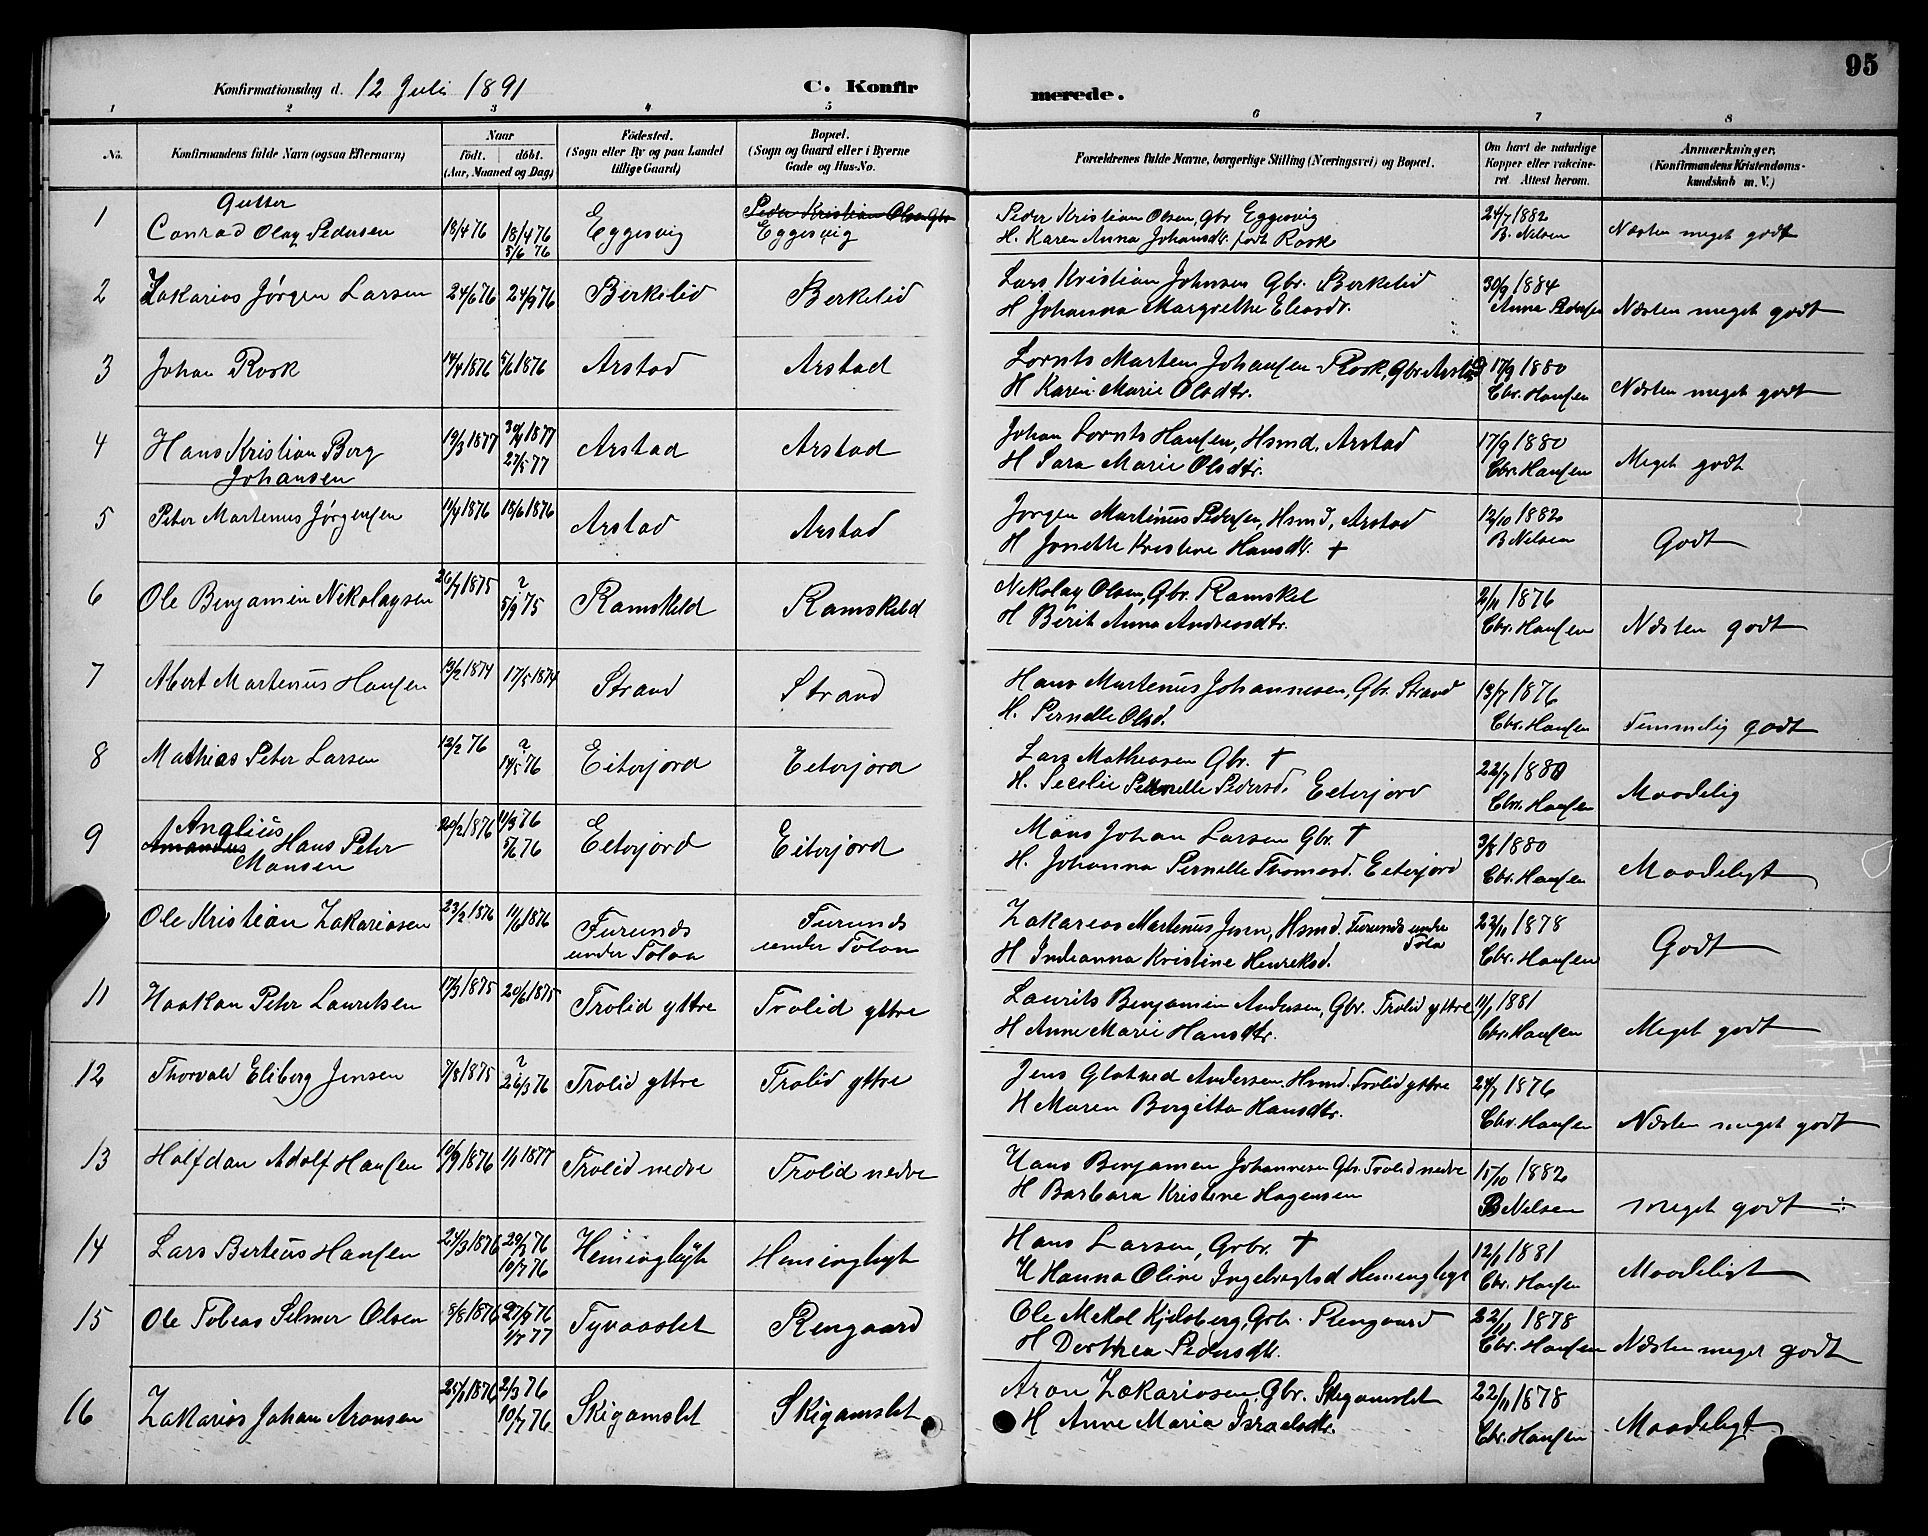 95
Konfirmationsdag d. 12 Juli 1891 C. Konfirmerede.
1 2 3 4 5 6 7 8
No. Konfirmandens fulde Navn (ogsaa Efternavn) Naar født. døbt. (Aar, Maaned og Dag) Fødested. (Sogn eller By og paa Landet tillige Gaard) Bopæl. (Sogn og Gaard eller i Byerne Gade og Hus-No. Forældrenes fulde Navne, borgerlige Stilling (Næringsvei) og Bopæl. Om havt de naturlige Kopper eller vakcineret Attest herom. Anmærkninger. (Konfirmandens Kristendomskundskab m. V.)
Gutter
1 Conrad Olay Pedersen 18/4 76 18/4 76 5/6 76 Eggesvig Peder Kristian Olsen Gbr Eggesvig Peder Kristian Olsen, Gbr Eggesvig 24/7 1882
H. Karen Anna Johansdtr. født Rosk B. Nilsen Næsten meget godt
2 Zakarias Jørgen Larsen 24/6 76 24/9 76 Birkelid Berkelid Lars Kristian Johnsen Gbr. Berkelid 30/9 1884
H Johanna Margrethe Eliasdr. Anna Pedersen Næsten meget godt
3 Johan Rosk 14/4 1876 5/6 1876 Arstad Arstad Lornts Martin Johansen Rosk, Gbr Arstad 17/9 1880
H Karin Marie Olsdtr. Chr. Hansen Næsten meget godt
4 Hans Kristian Berg 19/3 1877 30/4 1877 Arstad Arstad Johan Lornts Hansen, Hsmd. Arstad 17/9 1880
Johansen 27/5 77 H Sara Marie Olsdtr. Chr. Hansen Meget godt
5 Peter Martenus Jørgensen 11/4 1876 18/6 1876 Arstad Arstad Jørgen Martinus Pedersen, Hsmd, Arstad 12/10 1882
H Jonette Kristine Hansdtr. † B Nilsen Godt
6 Ole Benjamin Nikolaysen 26/7 1875 5/9 75 Ramskeld Ramskeld Nikolay Olsen, Gbr. Ramskel 2/11 1876
H Berit Anna Andreasdtr. Chr. Hansen Næsten godt
7 Abert Martenus Hansen 13/2 1874 17/5 1874 Strand Strand Hans Martenus Johannesen, Gbr. Strand 13/7 1876
H. Pernelle Olsd. Chr. Hansen Temmelig godt
8 Mathias Peter Larsen 12/2 76 14/5 76 Eiterjord Eeterjord Lars Mathiasen Gbr. †
H. Secelie Pernelle Pedersd. Eeterjord 22/7 1880 Chr. Hansen Maadelig
9 Anglius Amandus Hans Peter 20/2 1876 11/3 76 Eeterjord Eiterjord Mons Johan Larsen Gbr. † 3/8 1880
Monsen 5/6 76 H. Johanna Pernelle Thomasd. Eeterjord Chr. Hansen Maadeligt
Ole Kristian Zakariasen 23/2 1876 11/6 1876 Furunds Furunds Zakarias Martenus Jenn, Hsmd. Furunds under Tola 22/11 1878
under Tolaa under Tolaa H Indianna Kristine Henriksd. Chr. Hansen Godt
11 Haakon Peter Lauritsen 17/3 1875 20/6 1875 Trolid yttre Trolid yttre Laurits Benjamin Andersen, Gbr. Trolid yttre 11/1 1881
H Anne Marie Hansdtr. Chr. Hansen Meget godt
12 Thorvald Eliberg Jensen 7/8 1875 26/3 76 Trolid yttre Trolid yttre Jens Glatved Andersen Hsmd. Trolid yttre 24/7 1876
H Maren Bergitta Hansdtr. Chr. Hansen Næsten meget godt
13 Halfdan Adolf Hansen 10/9 1876 1/1 1877 Trolid nedre Trolid nedre Hans Benjamen Johannesen Gbr Trolid nedre 15/10 1882
H Barbara Kristine Hagensen B Nelsen meget godt ÷
14 Lars Berteus Hansen 24/3 1876 29/3 76 Heminghyt Hemenghyt Hans Larsen, Grbr. † 12/1 1881
10/7 76 H Hanna Oline Ingebrigtsd Hemenghyt Chr. Hansen Maadeligt
15 Ole Tobias Selmer Olsen 8/8 1876 27/9 76 Tyvaaslet Rengaard Ole Mekal Kjelsberg, Grb. Rengaard 22/11 1878
1/7 77 H Dorthea Pedersdtr. Chr. Hansen Næsten meget godt
16 Zakarias Johan Aronsen 25/1 1876 2/3 76 Skigamslet Skigamslet Aron Zakariasen, Gbr. Skigamslet 22/11 1878
10/7 76 H Anne Maria Israelsdtr. Chr. Hansen Maadeligt